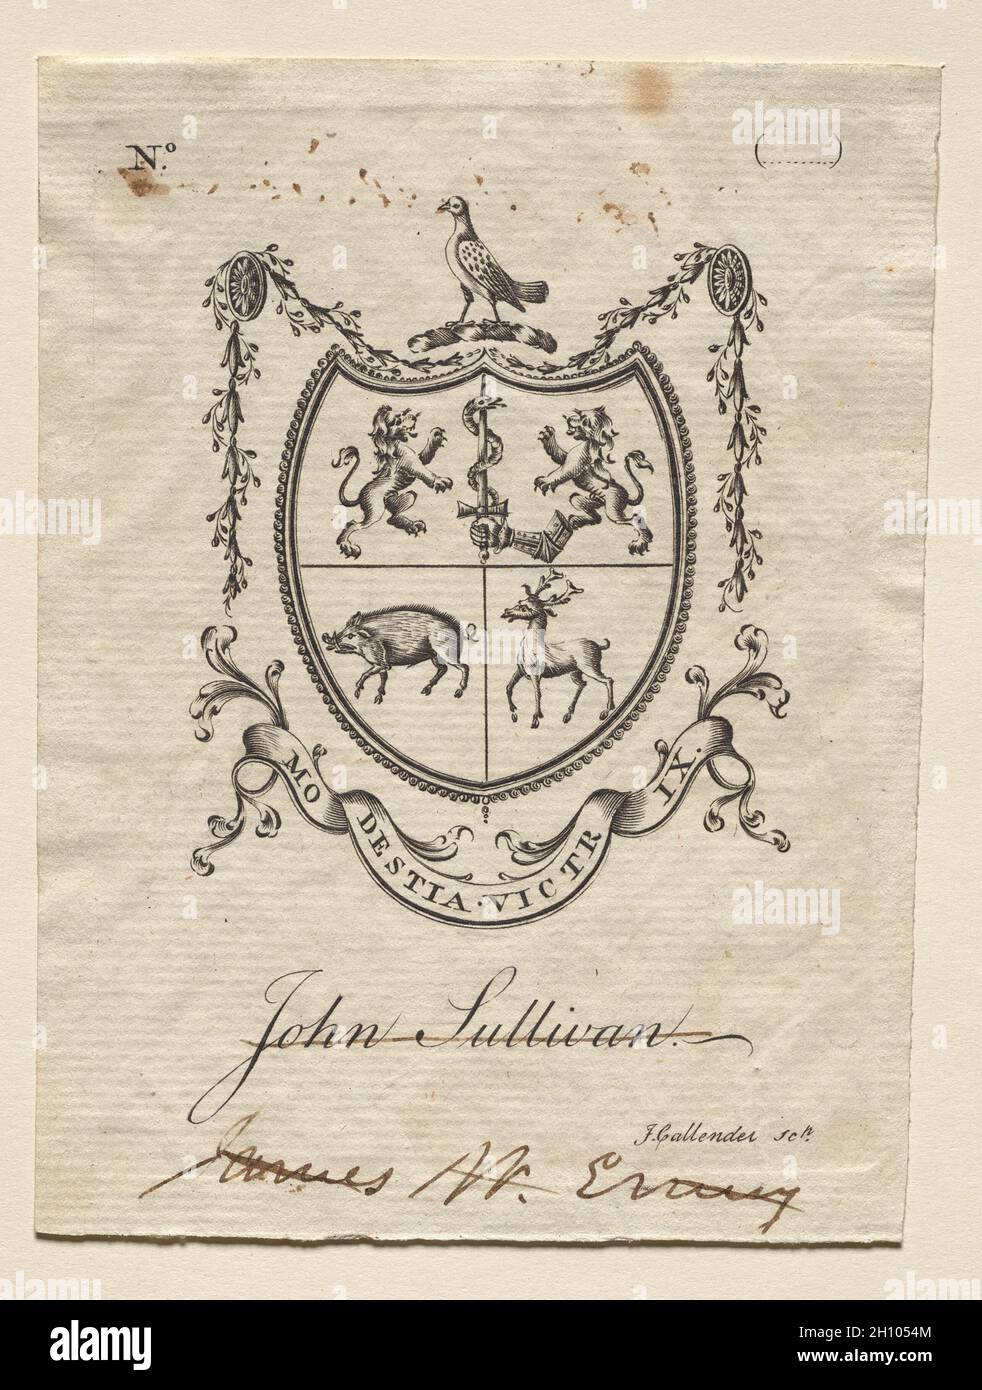 N.º
(............)
MODESTIA·VICTRIX.
John Sullivan.
J. Callender sct.
James W. Emery
alamy
Image ID: 2H1054M
www.alamy.com